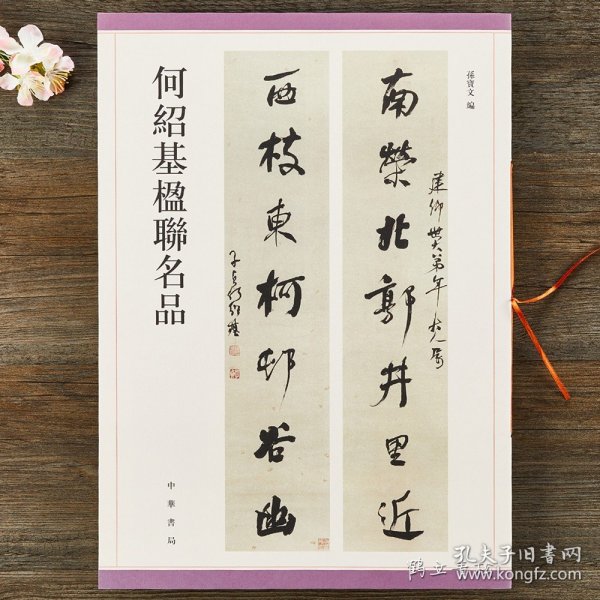 孫寶文 編
南榮北郭井里近
西枝東柯邨谷幽
子貞何紹基
何紹基楹聯名品
中華書局
孔夫子旧书网
www.kongfz.com